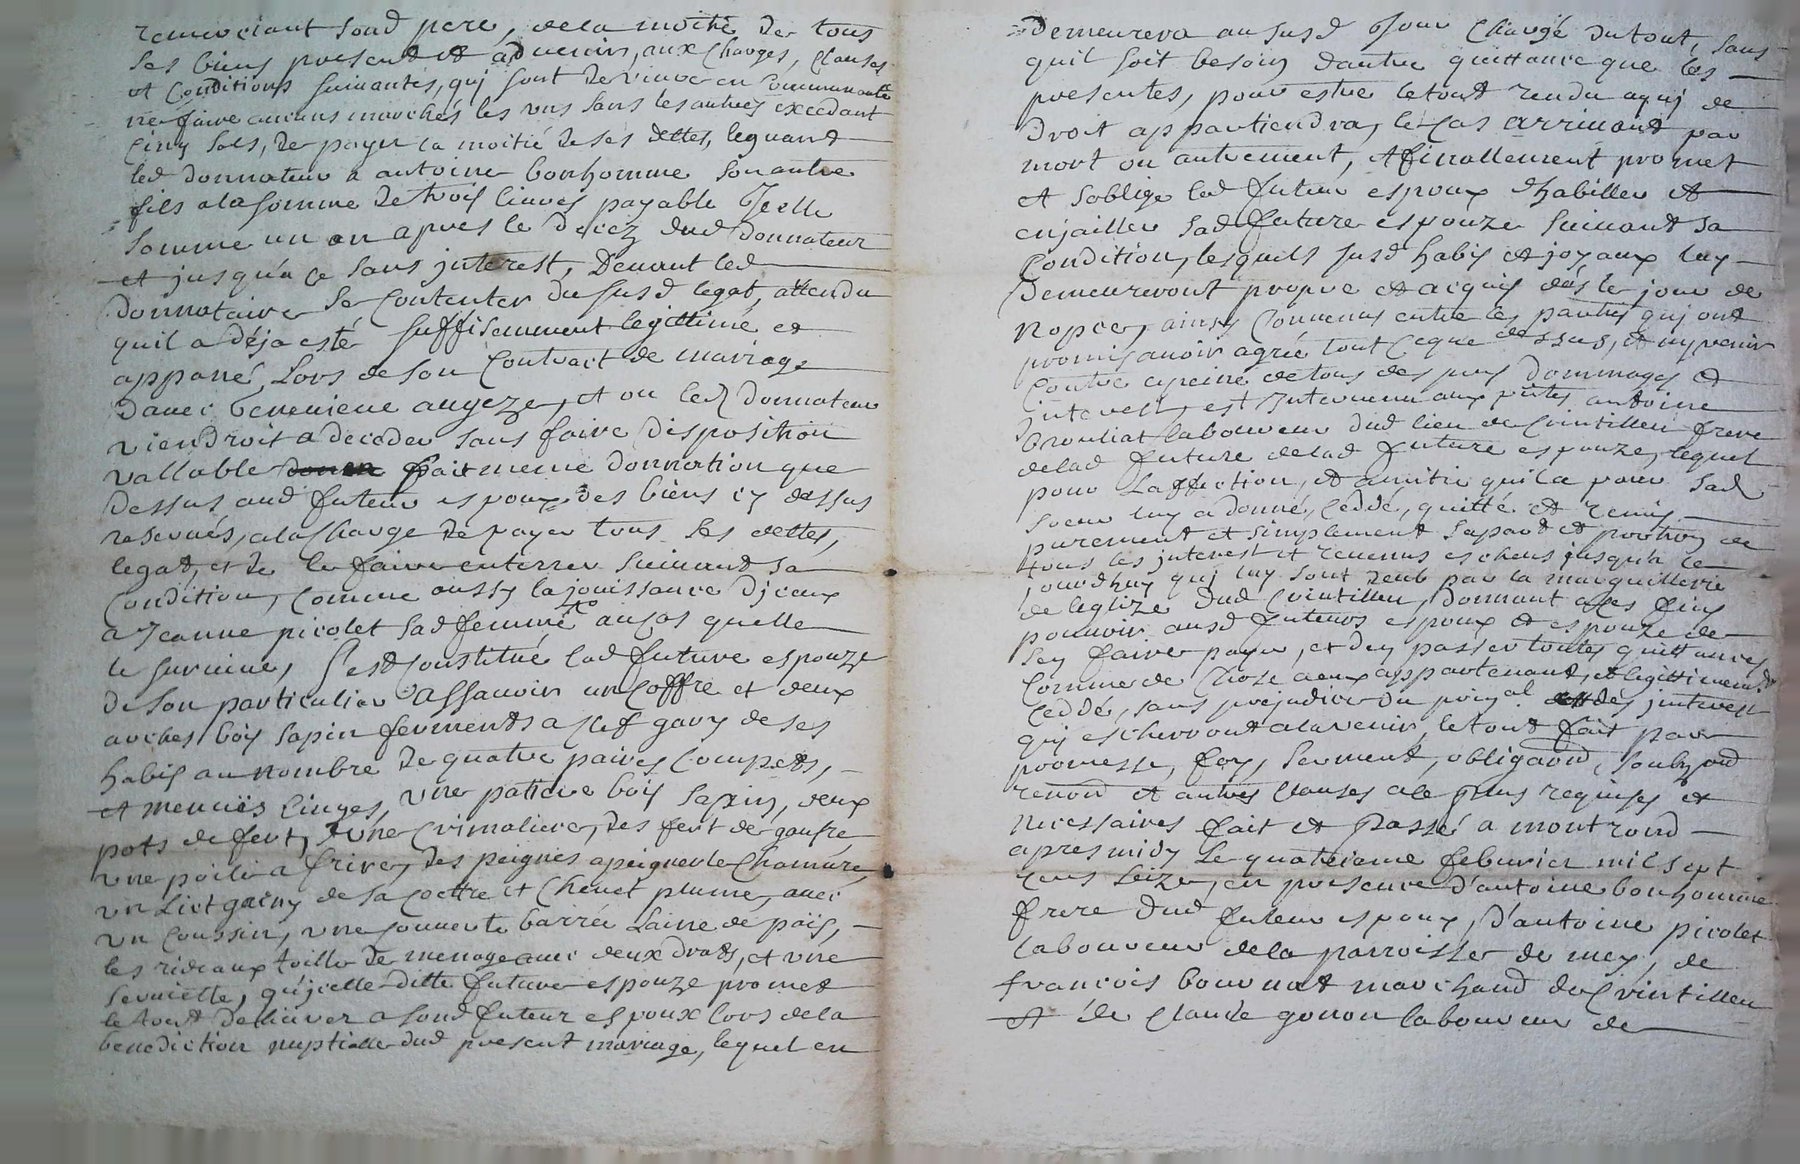 remerciant sond pere, de la moitié de tous
ses biens present et advenir, aux charges, clauses
et conditions suivantes, qui sont de vivre en communauté
ne faire aucuns marchés les uns sans les autres excedant
cinq sols, de payer la moitié de ses dettes, leguant
led donnateur a antoine bonhomme son autre
fils a la somme de trois livres payable Jcelle
somme un an apres le decez dud donnateur
et jusqu'a ce sans jnterest, Devant led
donnataire se contenter du susd legat, attendu
quil a déja esté suffisemment legittimé et
appané, Lors de son contract de mariage
davec benevieue augeze, et ou led donnateur
viendroit a deceder sans faire disposition
vallable fait meme donnation que
dessus aud futeur espoux des biens cy dessus
reservés, a la charge de payer tous ses dettes,
legat, et de le faire enterrer suivant sa
condition, comme aussy la jouissance Djceux
a Jeanne picolet sad femme au cas quelle
le survive, s'est constitué lad future espouze
de son particulier assavoir un coffre et deux
arches bois sapin ferments a clef garny de ses
habis au nombre de quatre paires compets,
et menuës linges, une patiere bois sapin, deux
pots de fert, une crimaliere, des fert de gaufre
une poile a frire, des peignes a peigner le chanure,
un Lict garny de sa coettre et chevet plume, avec
un coussin, une couverte barrée Laine de païs,
les rideaux toille de menage avec deux draps, et une
serviette, qu'jcelle ditte future espouze promet
le tout delivrer a sond futeur espoux lors de la
benediction nuptialle dud present mariage, lequel en
Demeurera au susd Jour chargé du tout, sans
quil soit besoin dautre quittance que les
presentes, pour estre le tout rendu a qui de
droit appartiendra, le cas arrivant par
mort ou autrement, et finallement promet
et soblige led futeur espoux dhabiller et
enjailler sad future espouze suivant sa
condition, lesquels susd habis et joyaux luy
Demeureront propre et acquis dés le jour de
nopces, ainsy convenus entre les parties qui ont
promis avoir agrée tout ce que dessus, et ny venir
contre a peine de tous despens dommages et
jnterest, est Jntervenu aux pntes antoine
brouliat laboureur dud lieu de Crintilleu frere
delad future delad future espouze, lequel
pour Laffection, et amitié quil a pour sad
soeur luy a donné, cedde, quitté et remis
purement et simplement sa part et portion de
tous les jnterest et revenus escheus jusqu'a ce
jourdhuy qui luy sont deub par la marguillerie
de leglize dud Crintilleu, donnant a ces fins
pouvoir ausd futeurs espoux et espouze de
sen faire payer, et den passer toutes quittances
comme de chose a eux appartenant, et legittimemt
cedde, sans prejudice du prinal des jnterest
qui escherront a lavenir, le tout fait par
promesse, foy, serment, obligaond, soubzond
renond et autres clauses a ce plus requises et
necessaires fait et Passé a montrond
apres midy Le quatrieme febvrier mil sept
cens seize, en presence d'antoine bonhomme
frere dud futeur espoux, D'antoine picolet
laboureur de la parroisse de mey, de
francois bournat marchand de Crintilleu
et de claude gonon laboureur de